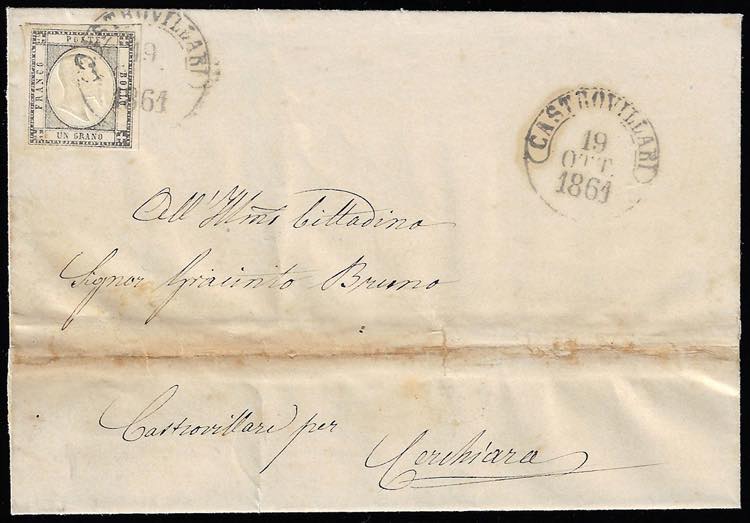 FRANCO
POSTE
BOLLO
UN GRANO
CASTROVILLARI
19
1861
CASTROVILLARI
19
OTT.
1861
All'Ill.mo Cittadino
Signor Giacinto Bruno
Castrovillari per
Cerchiara